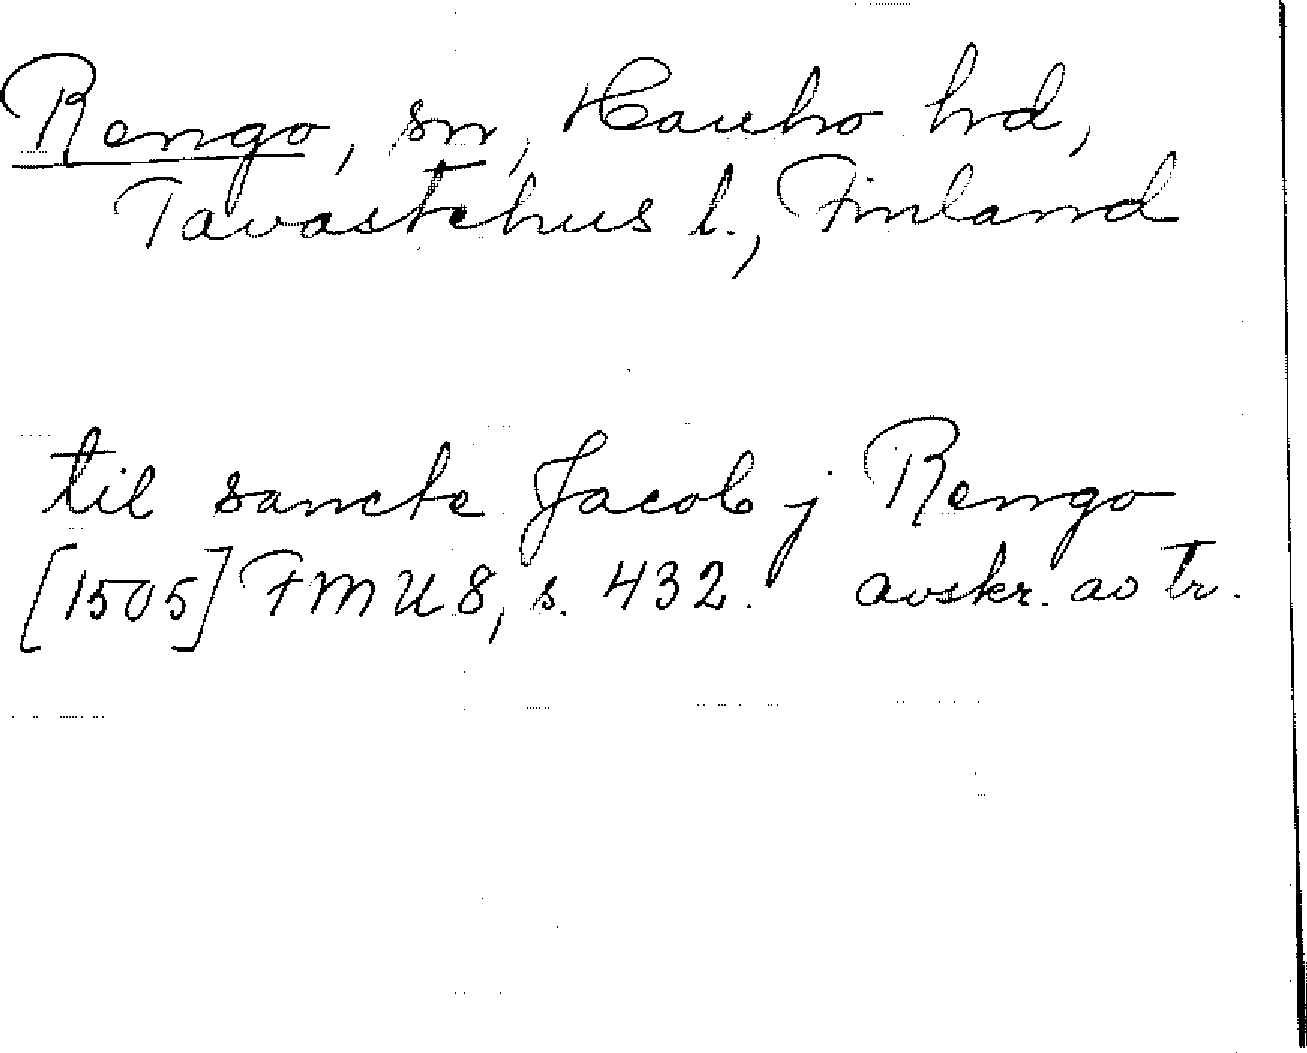 Rengo, sn, Hauho hrd,
Tavastehus l., Finland
til sancte Jacob j Rengo
[1505] FMU 8, s. 432. avskr. av tr.